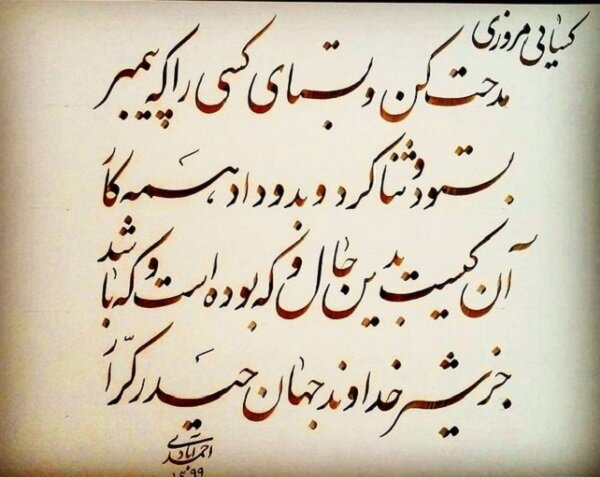 کسایی مروزی
مدحت کن و بستای کسی را که پیمبر
بستود و ثنا کرد و بدو داد همه کار
آن کیست بدین حال و که بوده است و که باشد
جز شیر خداوند جهان حیدر کرّار
احمدآبادی
۱۳۹۹